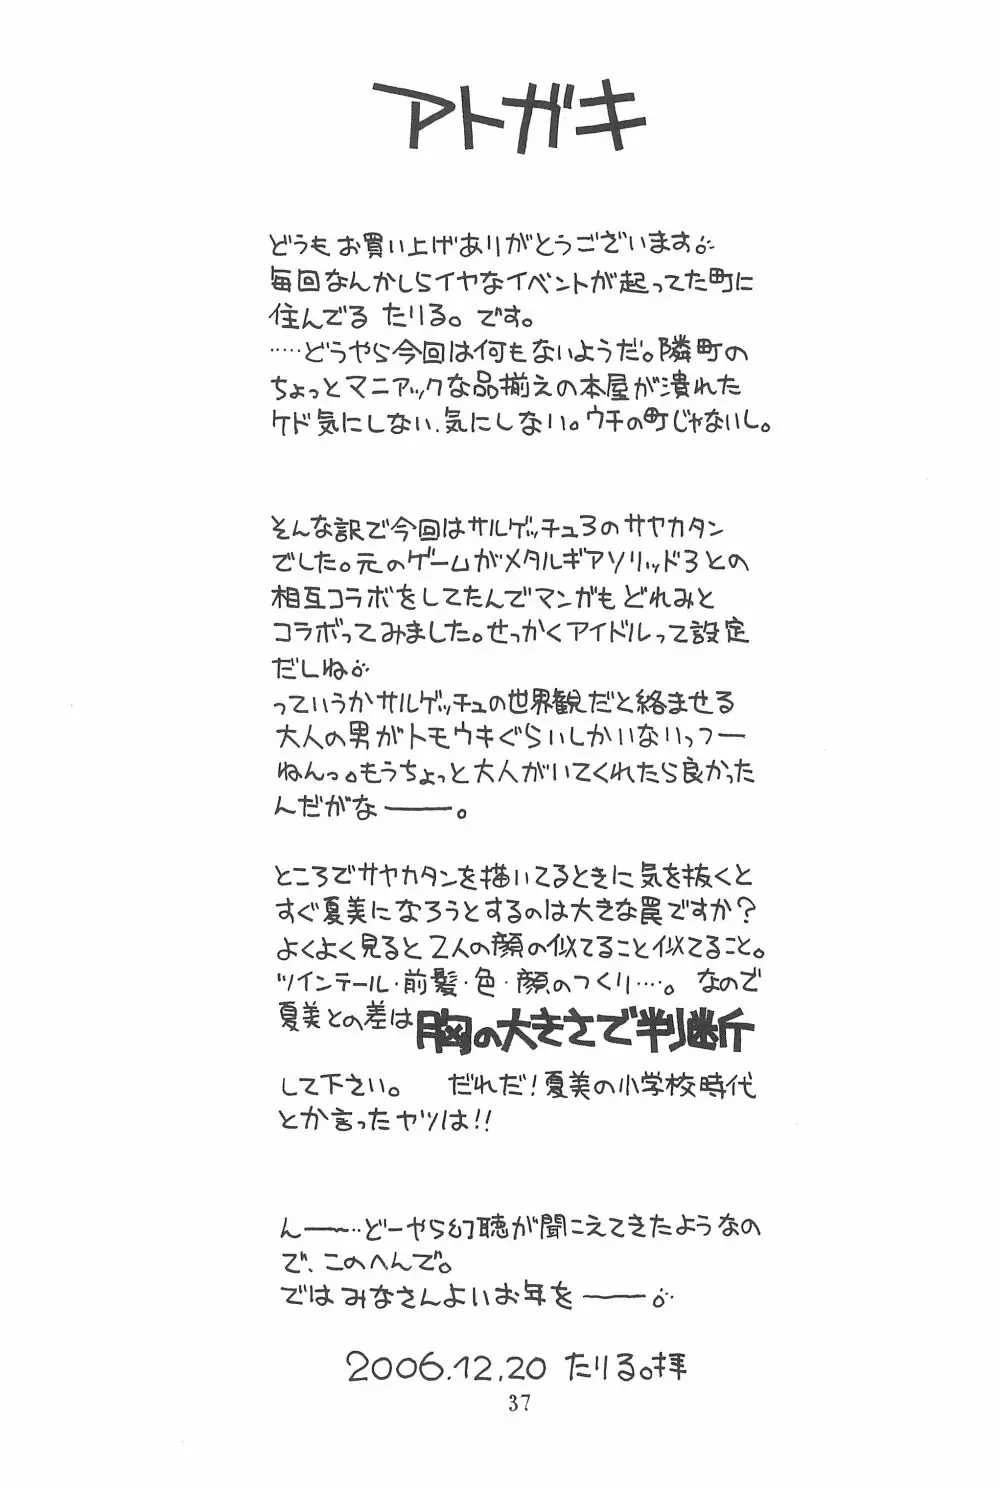 アトガキ
どうもお買い上げありがとうございます。
毎回なんかしらイヤなイベントが起ってた町に
住んでる たりる。です。
……どうやら今回は何もないようだ。隣町の
ちょっとマニアックな品揃えの本屋が潰れた
ケド気にしない、気にしない。ウチの町じゃないし。
そんな訳で今回はサルゲッチュ3のサヤカタン
でした。元のゲームがメタルギアソリッド3との
相互コラボをしてたんでマンガも どれみと
コラボってみました。せっかくアイドルって設定
だしね。
っていうかサルゲッチュの世界観だと絡ませる
大人の男がトモウキぐらいしかいないっつー
ねんっ。もうちょっと大人がいてくれたら良かった
んだがなー。
ところでサヤカタンを描いてるときに気を抜くと
すぐ夏美になろうとするのは大きな罠ですか?
よくよく見ると2人の顔の似てること似てること。
ツインテール・前髪・色・顔のつくり…。なので
夏美との差は胸の大きさで判断
して下さい。 だれだ!夏美の小学校時代
とか言ったヤツは!!
んー〜…どーやら幻聴が聞こえてきたようなの
で、このへんで。
ではみなさんよいお年をー。
2006.12.20 たりる。拝
37